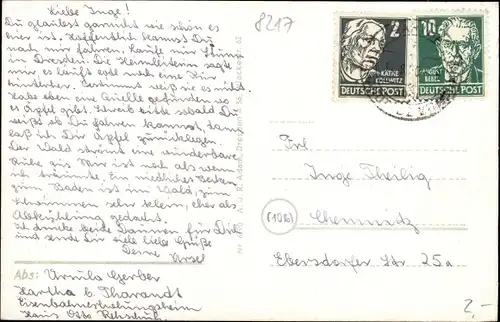 Liebe Inge!
Du glaubst garnicht wie schön es
hier ist. Hoffentlich kannst Du
noch mir fahren. Laufe mir
in Dresden. Die Heimleiterin sagte
mir, es läuft
Bestimmt weiß sie es nicht.
Habe eben eine Quelle gefunden wo
es Äpfel gibt. Schreib bitte sobald Du
weißt ob Du fahren kannst, damit
ich Dir Äpfel zurücklegen.
Der Wald strömt eine wunderbare
Ruhe aus. Mir ist noch als wenn
ich träumte. Ein niedliches Becken
zum Baden ist im Wald, zum
Schwimmen sehr klein, eher als
Abkühlung gedacht.
Ich drücke beide Daumen für Dich
und sende Dir viele liebe Grüße
Deine Ursel
Abs: Ursula Gerber
Hartha b. Tharandt
Eisenbahnerholungsheim
Haus Otto
8217
2
KÄTHE
KOLLWITZ
DEUTSCHE POST
10
AUGUST
BEBEL
DEUTSCHE POST
Frl.
Inge Theilig
(10b)
Chemnitz
Ebersdorfer Str. 25a
2,-